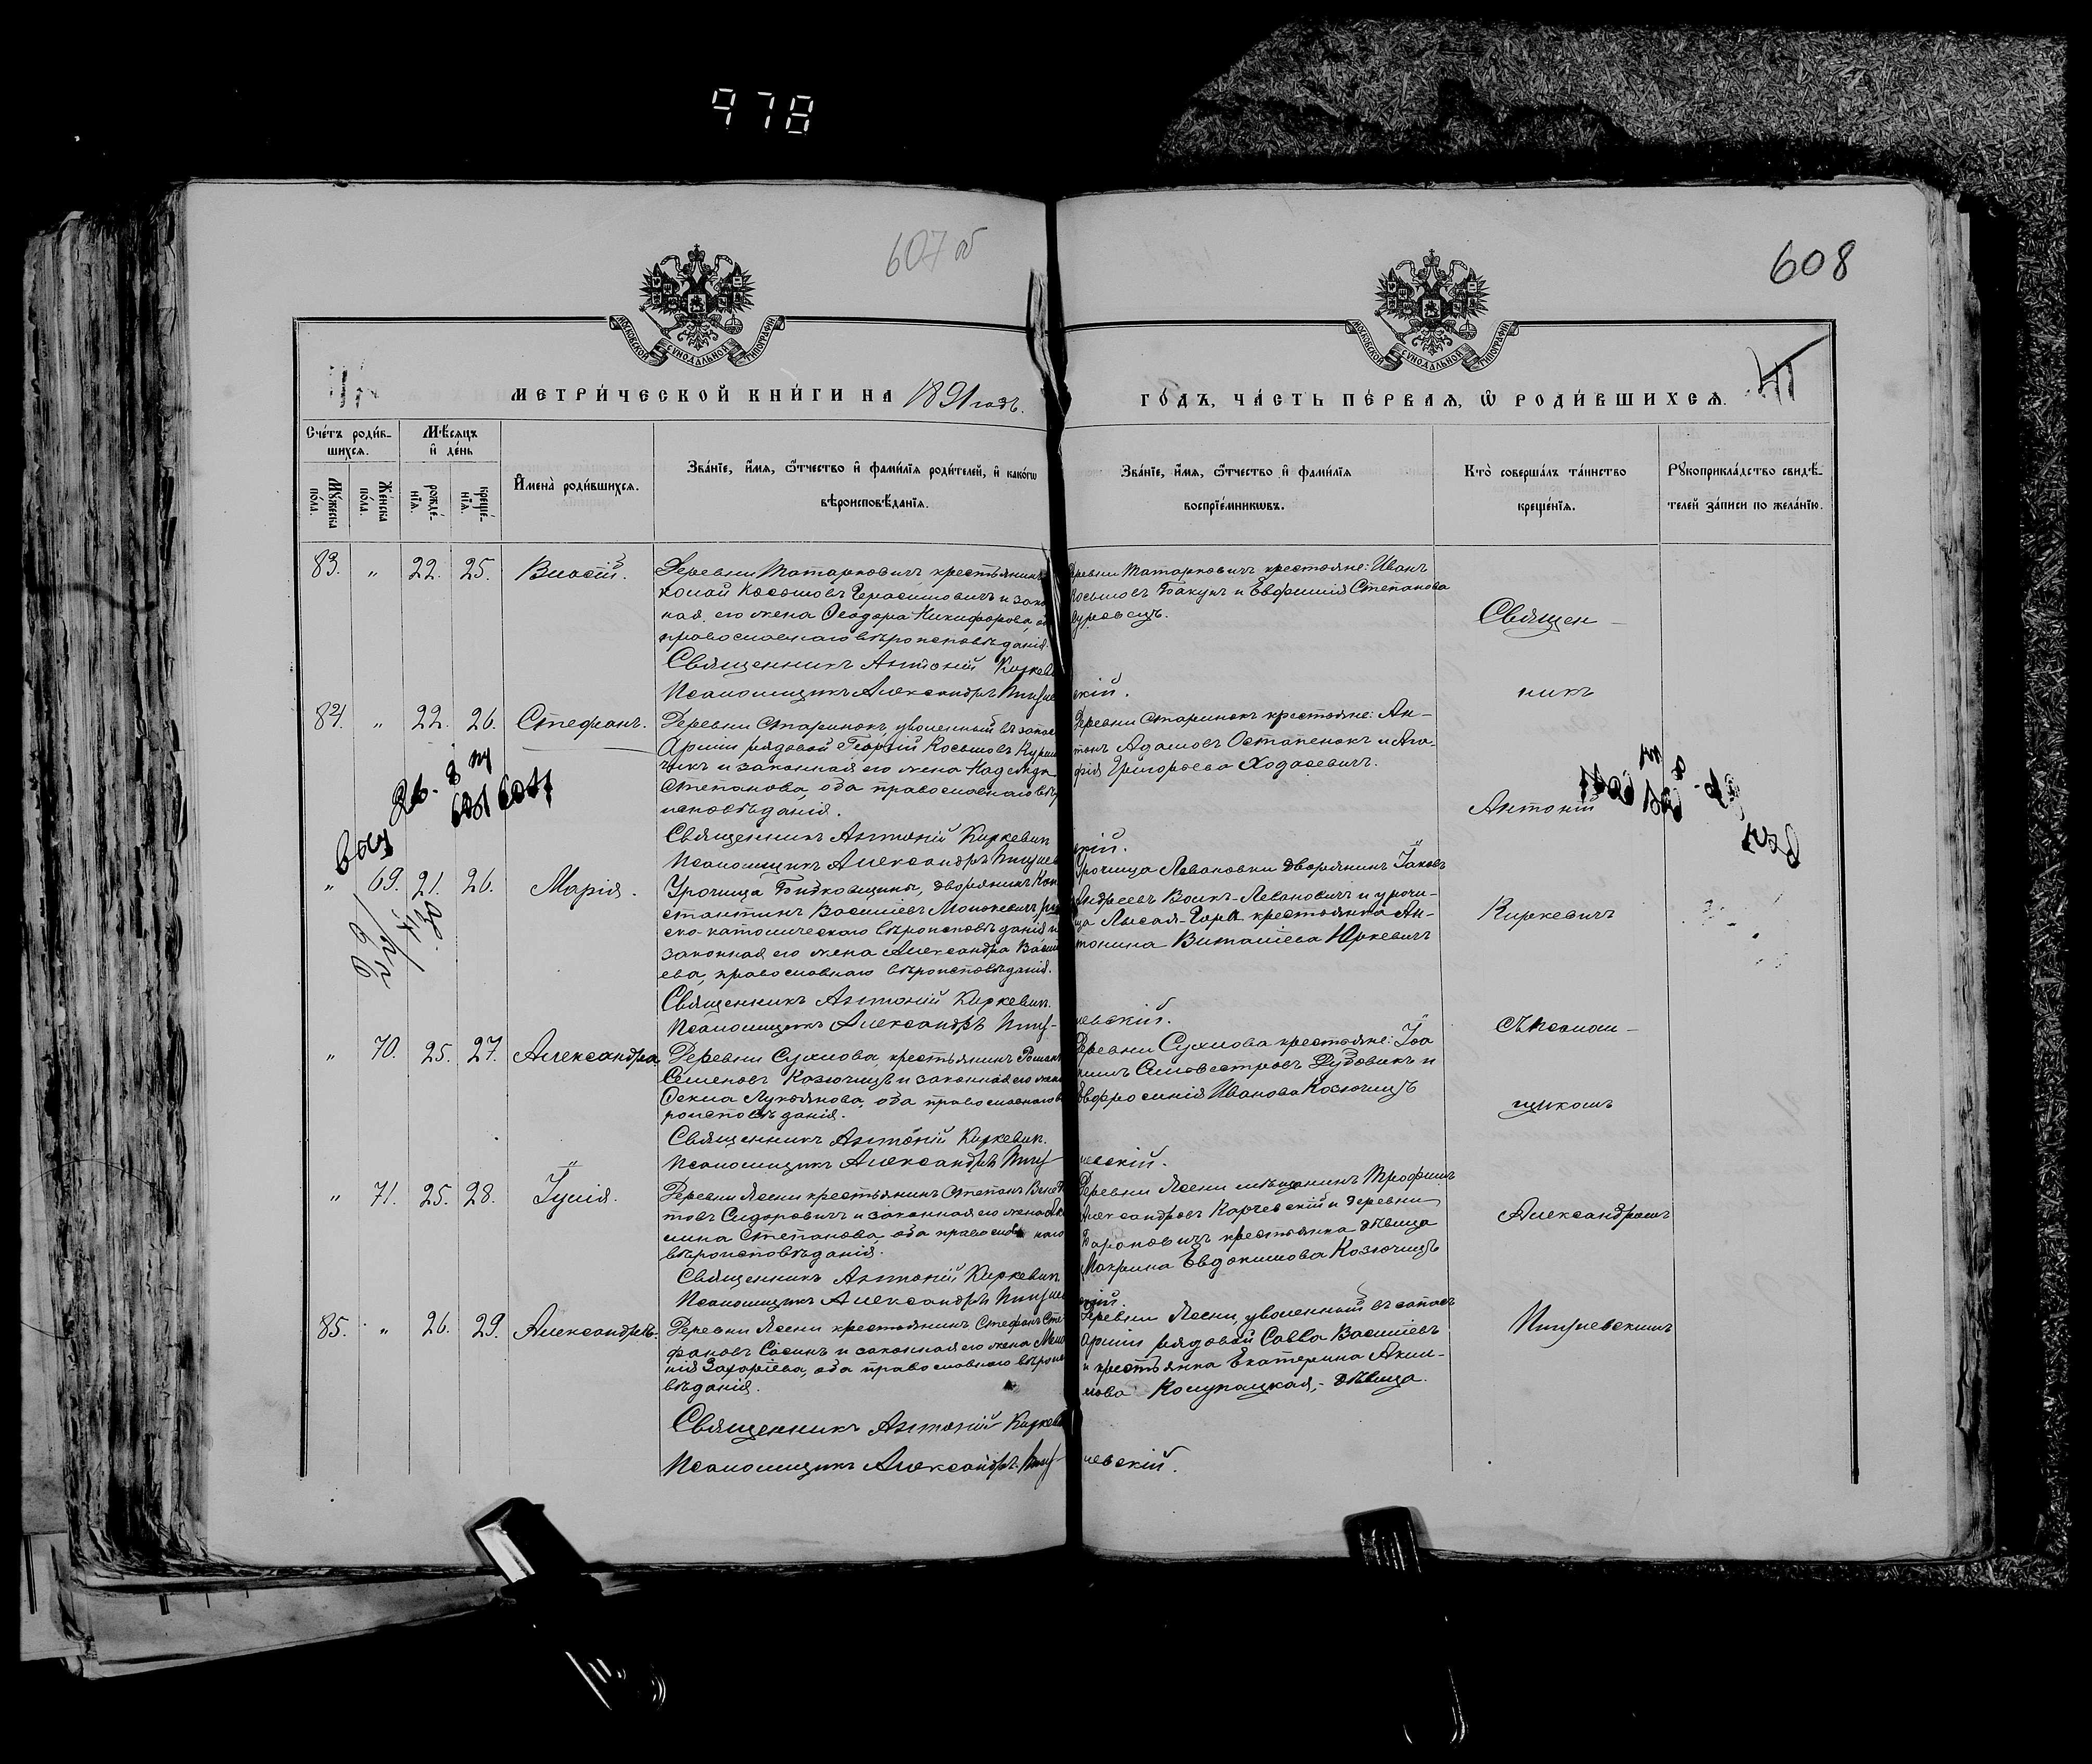 978
607 об
608
МОСКОВСКОЙ СѴНОДАЛЬНОЙ ТИПОГРАФІИ
МОСКОВСКОЙ СѴНОДАЛЬНОЙ ТИПОГРАФІИ
МЕТРИ́ЧЕСКОЙ КНИ́ГИ НА 1891 годъ.
ГО́ДЪ, ЧА́СТЬ ПЕ́РВАЯ, Ѽ РОДИ́ВШИХСЯ.
Сче́тъ роди́в-
шихся.
Мѣ́сяцъ
и҆ де́нь
Му́жеска
по́ла.
Же́нска
по́ла.
рожде́-
нїя.
креще́-
нїя.
И҆мена̀ роди́вшихся.
Зва́нїе, и҆́мя, ѻ҆́тчество и҆ фами́лїя роди́телей, и҆ како́гѡ
вѣроисповѣ́данїя.
Зва́нїе, и҆́мя, ѻ҆́тчество и҆ фами́лїя
воспрїе́мникѡвъ.
Кто̀ соверша́лъ та́инство
креще́нїя.
Рꙋкоприкла́дство свидѣ́-
телей за́писи по жела́нїю.
83. " 22. 25. Власій.
Деревни Татарковичъ крестьянинъ
колай Косьмовъ Герасимовичъ и зако
ная его жена Ѳеодора Никифорова,
православнаго вѣроисповѣданія.
Священникъ Антоній Киркеви
Псаломщикъ Александръ
скій.
Деревни Татарковичъ крестьяне: Иванъ
Косьмовъ Бакунъ и Евфимія Степанова
84. " 22. 26. Стефанъ.
Деревни Старинокъ, уволенный въ запасъ
Арміи рядовой Георгій Косьмовъ
чикъ и законная его жена Надежда
Степанова, оба православнаго вѣро
исповѣданія.
Священникъ Антоній Киркевич
Псаломщикъ Александръ
скій.
Деревни Старинокъ крестьяне: Ан-
тонъ Адамовъ Остапенокъ и Ага-
фія Григорьева Ходасевичъ.
" 69. 21. 26. Марія.
Урочища Бидковщины, дворянинъ Кон
стантинъ Васильевъ
ско-католическаго вѣроисповѣданія и
законная его жена Александра Васил
ева, православнаго вѣроисповѣданія.
Священникъ Антоній Киркевич.
Псаломщикъ Александръ
невскій.
Урочища Левановки дворянинъ Іаковъ
Андреевъ Волкъ-Левановичъ и урочи-
ща Лысая-Гора крестьянка Ан-
тонина Виталіева Юркевичъ
" 70. 25. 27. Александра.
Деревни Сухлова, крестьянинъ Романъ
Семеновъ Козючицъ и законная его жена
Ѳекла Лукьянова, оба православнаго в
роисповѣданія.
Священникъ Антоній Киркевич.
Псаломщикъ Александръ
невскій.
Деревни Сухлова крестьяне: Іоа
кимъ Сильвестровъ Дудовикъ и
Евфросинія Иванова Козючицъ
" 71. 25. 28. Іулія.
Деревни Ясени крестьянинъ Степанъ
товъ Сидоровичъ и законная его жена
лина Степанова, оба православнаго
вѣроисповѣданія.
Священникъ Антоній Киркевич
Псаломщикъ Александръ
скій.
Деревни Ясени мѣщанинъ Трофимъ
Александровъ Карчевскій и деревни
крестьянка дѣвица
Макрина Евдокимова Козючицъ
85. " 26. 29. Александръ.
Деревни Ясени крестьянинъ Стефанъ Сте
фановъ Сасинъ и законная его жена Мела
нія Захаріева, оба православнаго вѣроисп
вѣданія.
Священникъ Антоній Киркеви
Псаломщикъ Александръ
невскій.
Деревни Ясени, уволенный въ запасъ
арміи рядовой Савва Васильевъ
и крестьянка Екатерина Аким-
ова Колупацкая, - дѣвица.
Священ-
никъ
Антоній
Киркевичъ
съ Псалом-
щикомъ
Александромъ